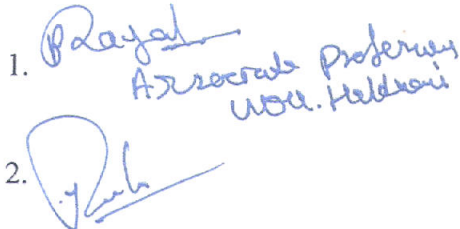 1. BRayal
Associate Professor
UOU. Haldwani
2.